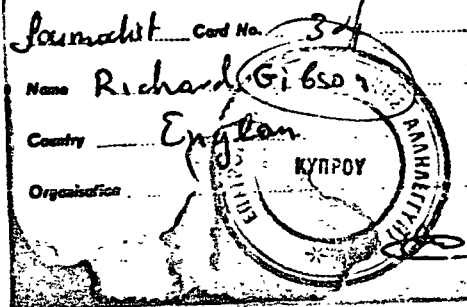 Journalist Card No. 34
Name Richard Gibson
Country Englan
Organisation
ΚΥΠΡΟΥ
ΑΛΛΗΛΕΓΓΥΗΣ